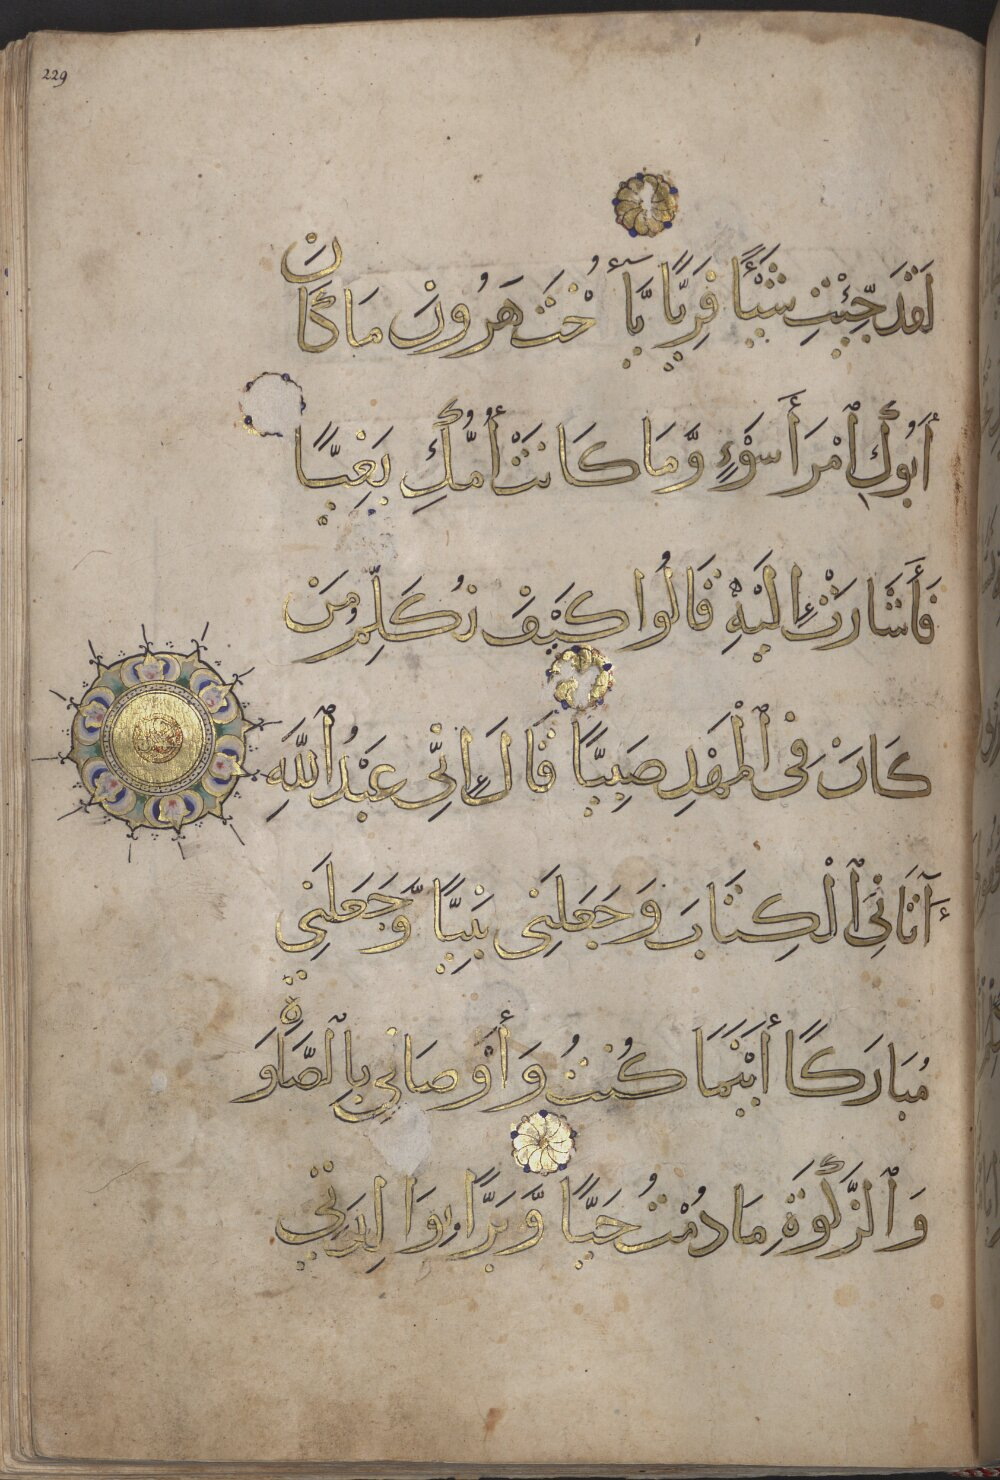 229
لَقَدْ جِئْتِ شَيْئًا فَرِيًّا يَا أُخْتَ هَرُونَ مَا كَانَ
أَبُوكِ ٱمْرَأَ سَوْءٍ وَّمَا كَانَتْ أُمُّكِ بَغِيًّا
فَأَشَارَتْ إِلَيْهِ قَالُوا كَيْفَ نُكَلِّمُ مَنْ
كَانَ فِي ٱلْمَهْدِ صَبِيًّا قَالَ إِنِّي عَبْدُ ٱللَّهِ
آتَانِيَ ٱلْكِتَابَ وَجَعَلَنِي نَبِيًّا وَّجَعَلَنِي
مُبَارَكًا أَيْنَمَا كُنْتُ وَأَوْصَانِي بِٱلصَّلَوةِ
وَٱلزَّكَوةِ مَا دُمْتُ حَيًّا وَّبَرًّا بِوَالِدَتِي